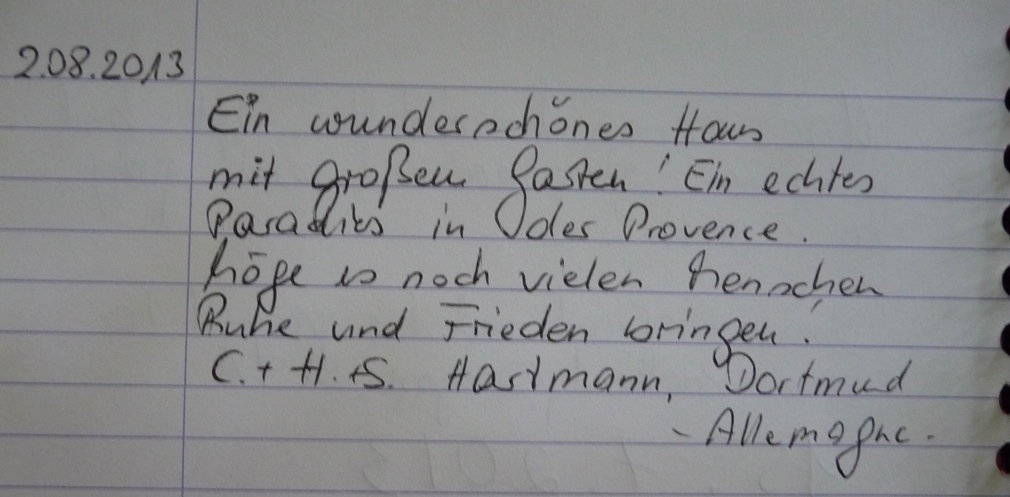 2.08.2013
Ein wunderschönes Haus
mit großem Garten! Ein echtes
Paradies in der Provence.
Möge es noch vielen Menschen
Ruhe und Frieden bringen!
C. + H. + S. Hartmann, Dortmund
- Allemagne.